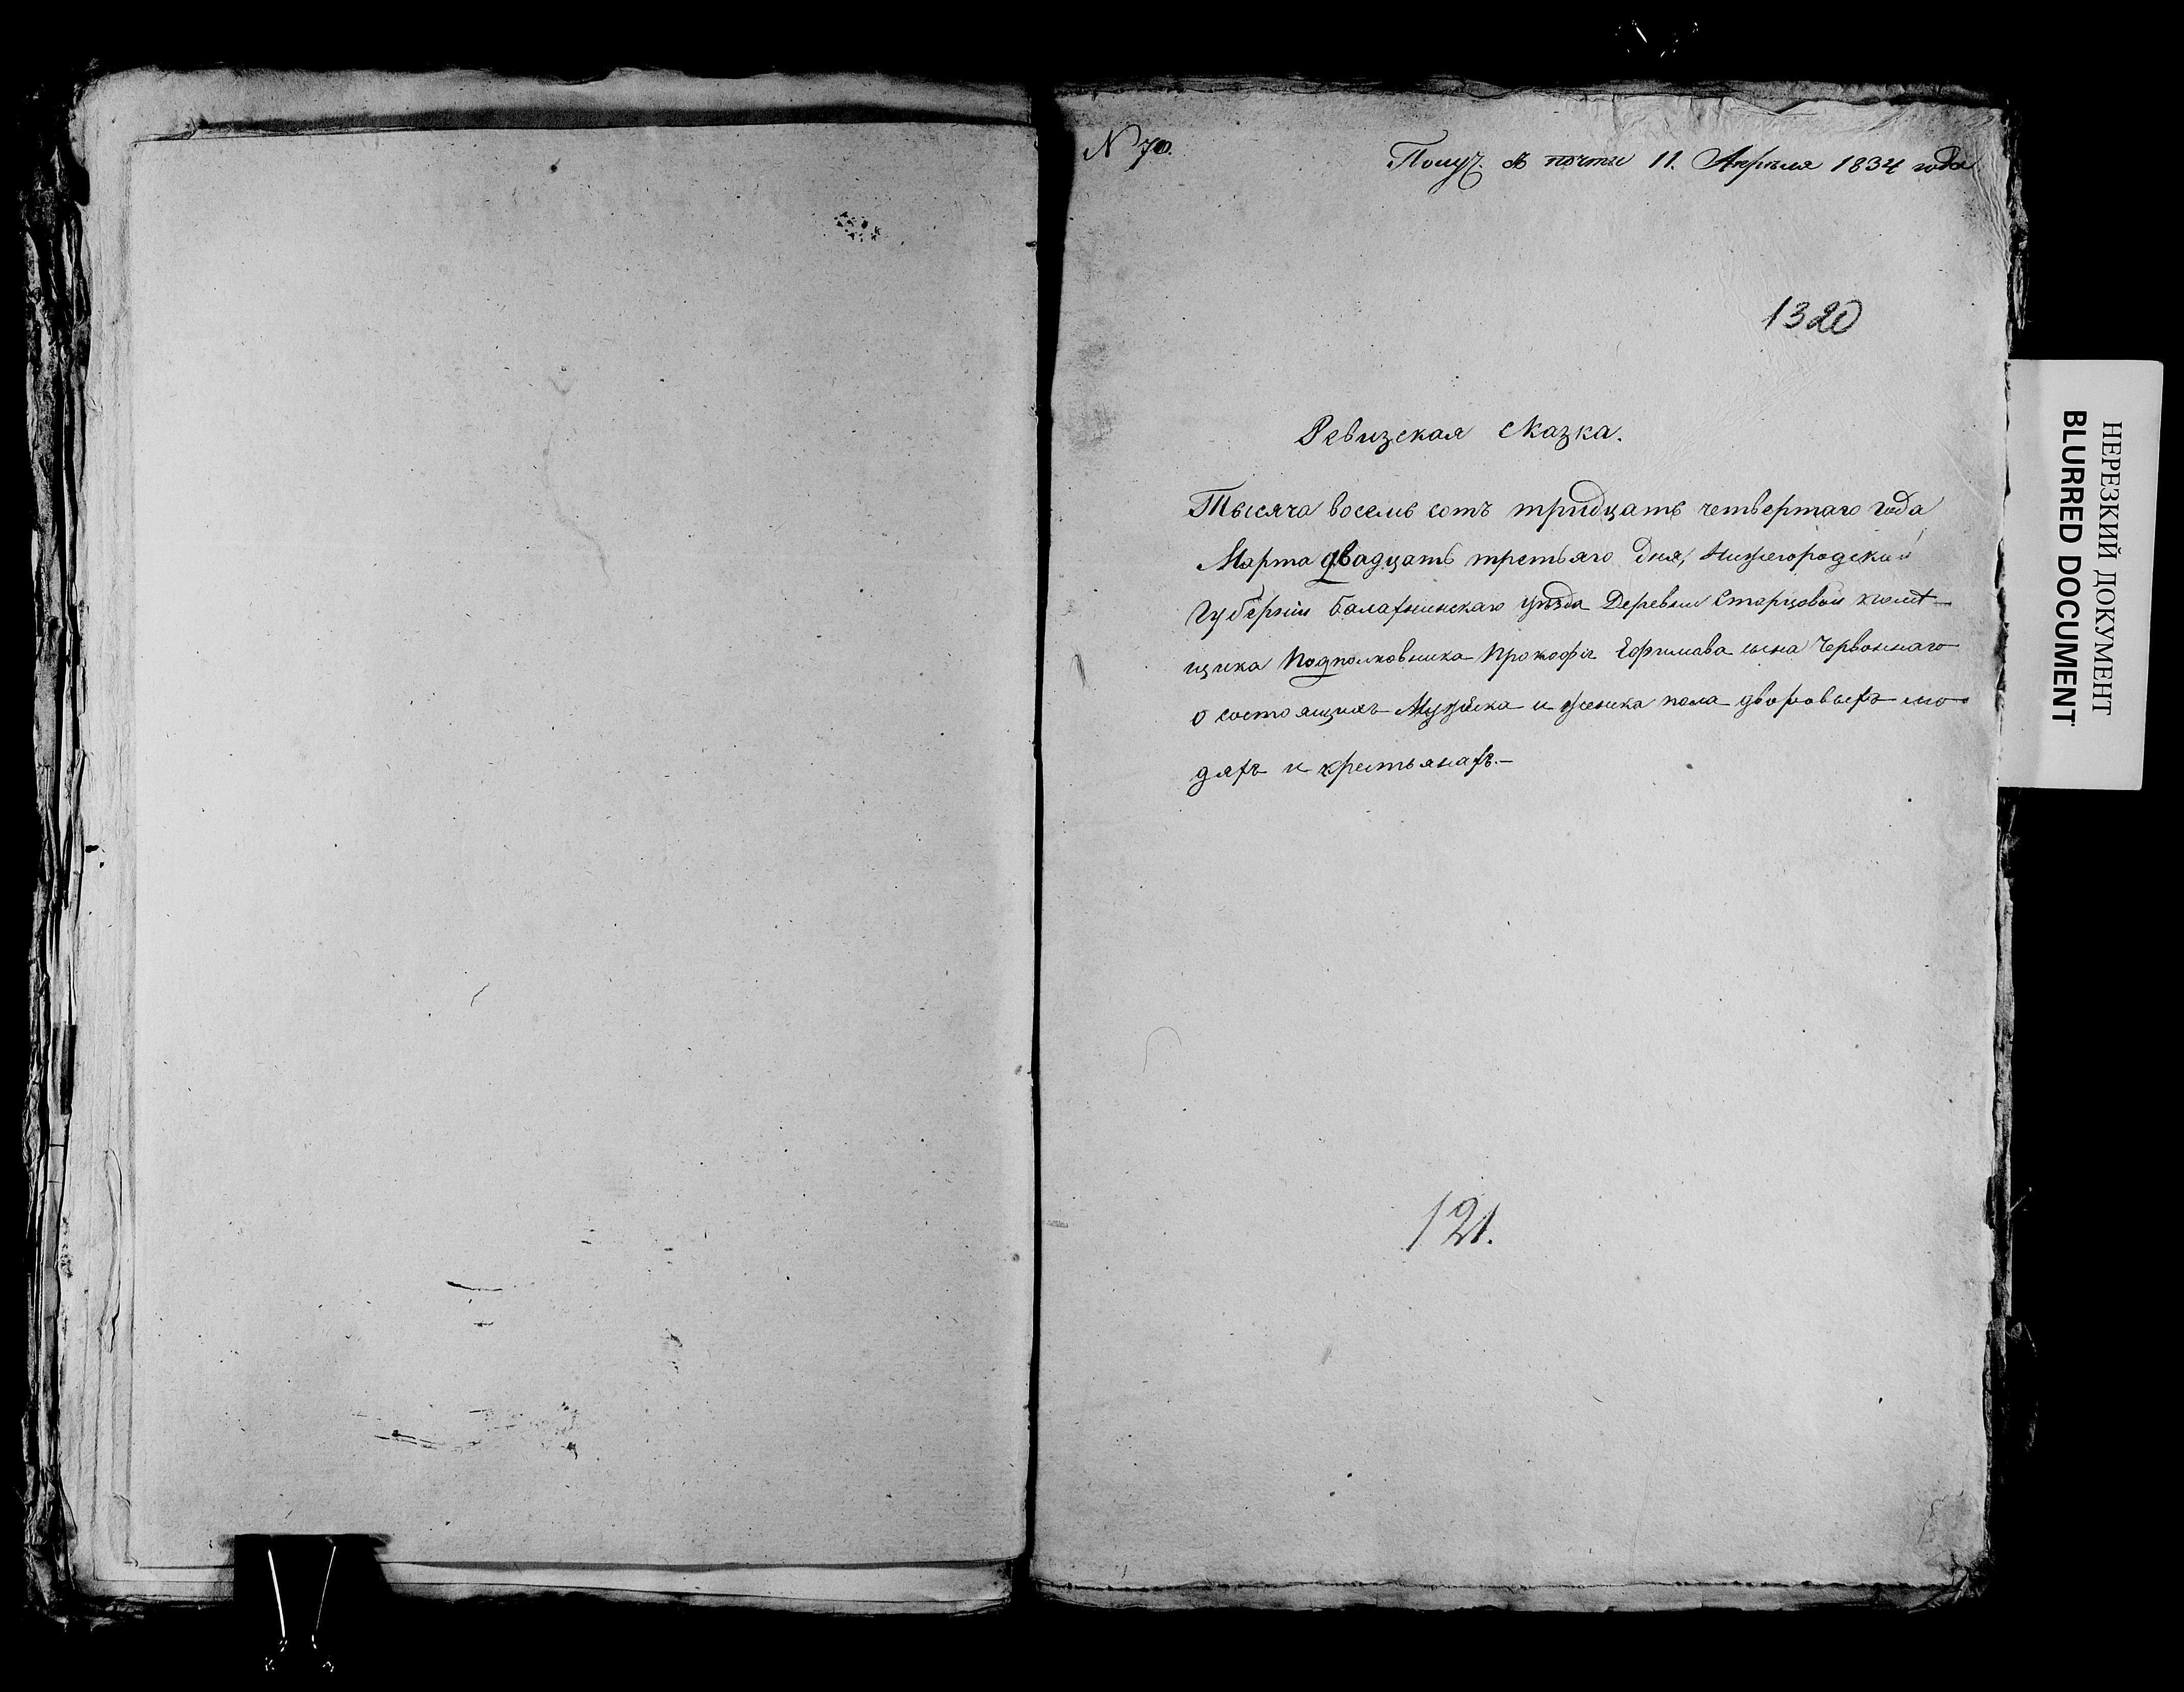 N 70.
Получ. съ почты 11. Апрѣля 1834 года
1320
Ревизская сказка.
Тысяча восемь сотъ тридцать четвертаго года
Марта двадцать третьяго дня, Нижегородский
Губернии Балахнинскаго уѣзда Деревни Старцовой помѣ-
щика Подполковника Прокофья Ефимава сына Червоннаго
о состоящихъ Мужеска и женска пола дворовыхъ лю-
дяхъ и крестьянахъ.-
121.
НЕРЕЗКИЙ ДОКУМЕНТ
BLURRED DOCUMENT